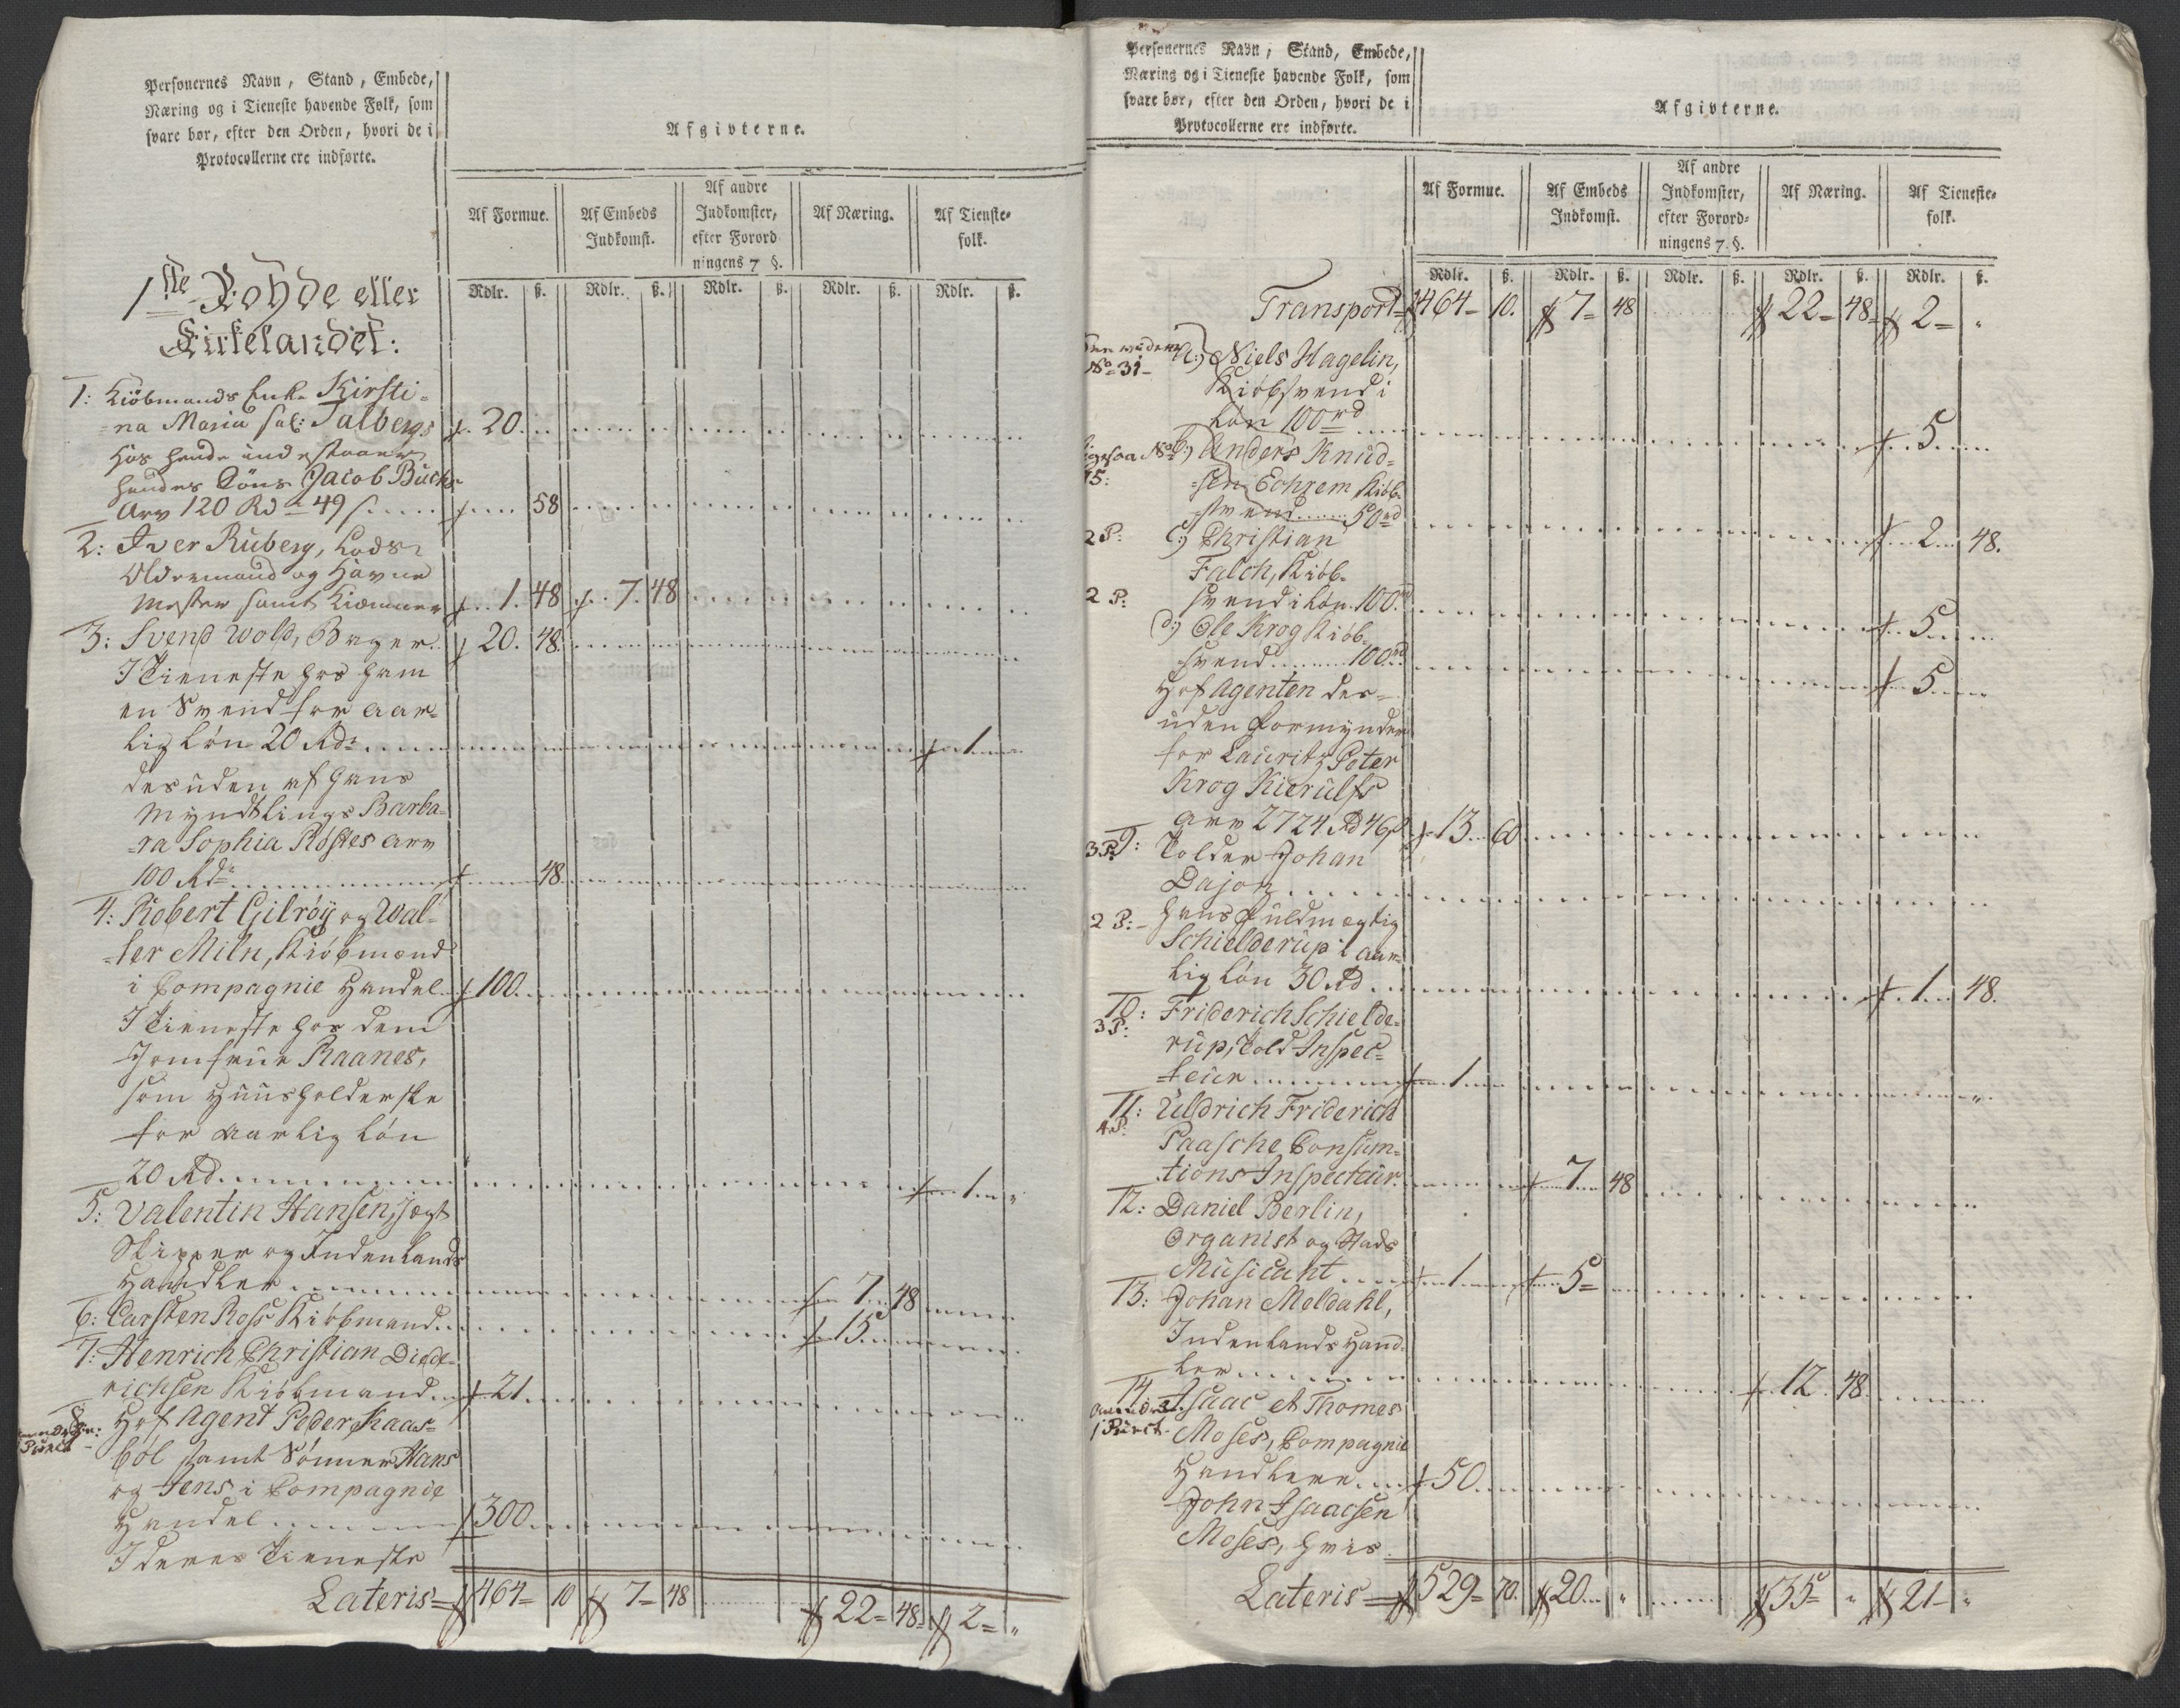 Personernes Navn, Stand, Embede,
Næring og i Tieneste havende Folk, som
svare bør, efter den Orden, hvori de i
Protocollerne ere indførte.
Afgivterne.
Af Formue.
Af Embeds
Indkomst.
Af andre
Indkomster,
efter Forord
ningens 7 §.
Af Næring.
Af Tieneste-
folk.
Rdlr. ß. Rdlr. ß. Rdlr. ß. Rdlr. ß. Rdlr. ß.
1ste Rohde eller
Kirkelandet:
1: Kiöbmands Enke Kirsti-
na Maria sal: Talbergs 20.
Hos hende indestaaer
hendes Söns Jacob Bucks
Arv 120 Rd 49 s 58
2: Iver Ruberg, Lods
Oldermand og Havne
Mester samt Kiæmner 1. 48 7. 48
3: Svend Wold, Bager 20. 48.
I Tieneste hos ham
en Svend for aar-
lig Løn 20 Rdr 1
desuden af hans
Myndtlings Barba-
ra Sophia Röstes Arv
100 Rdr 48
4: Robert Gilröy og Wal-
ter Miln, Kiöbmænd
i Compagnie Handel 100.
I Tieneste hos dem
Jomfrue Raanes,
som Huusholderske
for aarlig Løn
20 Rd 1 "
5: Valentin Hansen, Jægt
Skipper og Indenlands
Handler 7 48
6: Carsten Ross Kiöbmand 15
7: Henrich Christian Diede-
richsen Kiöbmand 21
8: Hof Agent Peder Kaas-
böl samt Sönner Hans
og Jens i Compagnie
Handel 300
I deres Tieneste
Lateris 464 10 7 48 22 48 2 "
Personernes Navn, Stand, Embede,
Næring og i Tieneste havende Folk, som
svare bør, efter den Orden, hvori de i
Protocollerne ere indførte.
Afgivterne.
Af Formue.
Af Embeds
Indkomst.
Af andre
Indkomster,
efter Forord-
ningens 7. §.
Af Næring.
Af Tieneste-
folk.
Rdlr. ß. Rdlr. ß. Rdlr. ß. Rdlr. ß. Rdlr. ß.
Transport 464 10. 7 48 22 48 2 "
No 31
a:) Niels Hagelin,
Kiöbsvend i
Løn 100 rd 5
b:) Anders Knud-
15:
sen Eohrem Kiöb-
svend 50 rd 2 48.
2 P: c:) Christian
Falch, Kiöb-
2 P: svend i Løn 100 rd 5
d:) Ole Krog Kiöb-
svend 100 rd 5
Hof Agenten des-
uden Formynder
for Lauritz Peter
Krog Kierulfs
Arv 2724 Rd 46 s 13 60
3 P: 9: Tolder Johan
Dajon
2 P: hans Fuldmægtig
Schielderup i aar-
lig Løn 30 Rd 1 48.
10: Friderich Schielde-
3 P:
rup, Told Inspec-
teur 1
11: Uldrich Friderich
4 P:
Paasche Consum-
tions Inspecteur 7 48
12: Daniel Berlin,
Organist og Stads
Musicant 1 5
13: Johan Meldahl,
Indenlands Hand-
ler 12 48
14: Isaac et Thomes
1 Punct.
Moses, Compagnie
Handlere 50
John Isaacsen
Moses, hvis
Lateris 529 70. 20 " 35 " 21 "